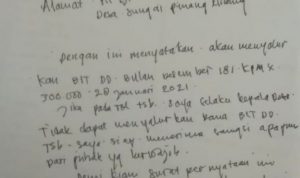 Alamat
Desa Sungai Pinang
Dengan ini menyatakan akan menyalur
kan BLT DD. Bulan Desember 181 KPM x
300.000. 20 Januari 2021.
Jika pada Tgl tsb. Saya selaku kepala Desa
Tidak dapat menyalurkan Dana BLT DD.
Tsb. Saya siap menerima sangsi apapun
Dari pihak yg berwajib.
Demi kian surat pernyataan ini